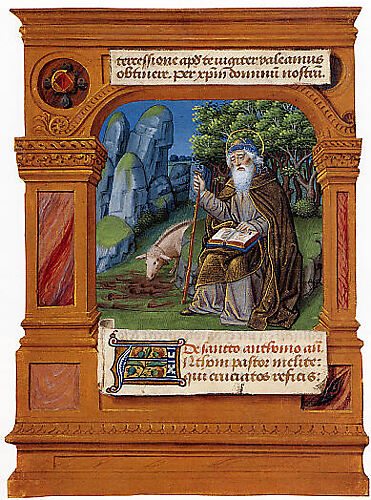 tercessione apd te iugiter valeamus
obtinere. Per xp̄m dominū nostrū.
De sancto anthonio an̄.
ANthoni pastor inclite:
qui cruciatos reficis: